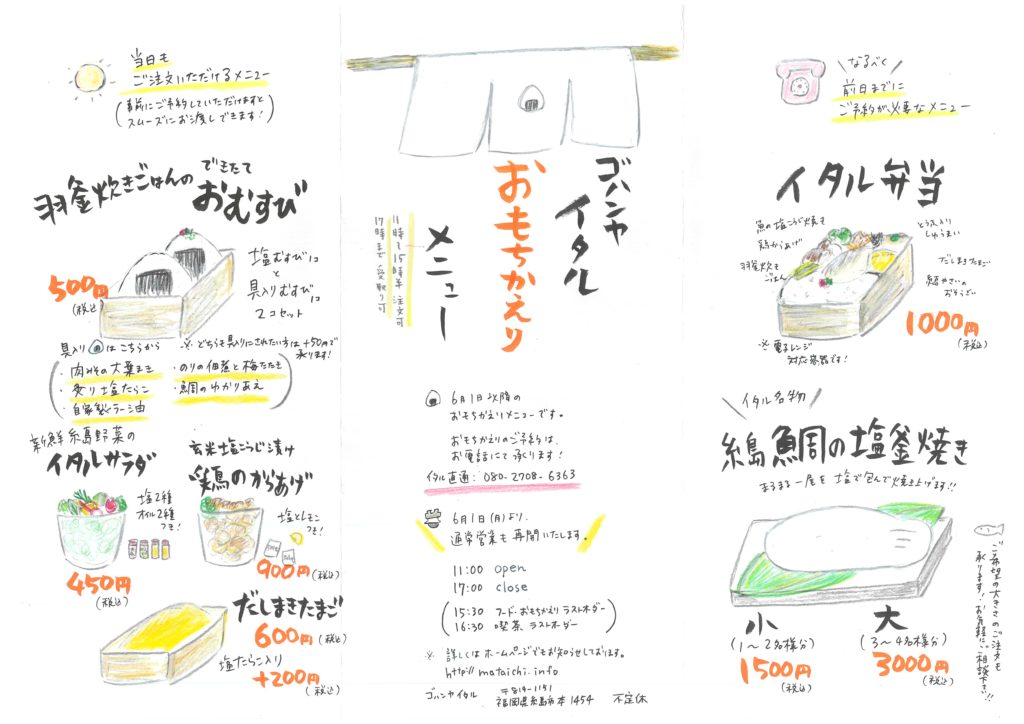 当日も
ご注文いただけるメニュー
(事前にご予約していただけますと
スムーズにお渡しできます!)
羽釜炊きごはんの できたて
おむすび
500円
(税込)
塩むすび1コ
と
具入りむすび1コ
2コセット
具入りはこちらから
※どちらも具入りにされたい方は+50円で
承ります!
・肉みその大葉まき
・炙り塩たらこ
・自家製ラー油
・のりの佃煮と梅たたき
・鯛のゆかりあえ
新鮮糸島野菜の
イタルサラダ
塩2種
オイル2種
つき!
450円
(税込)
玄米塩こうじ漬け
鶏のからあげ
塩とレモン
つき!
900円(税込)
だしまきたまご
600円(税込)
塩たらこ入り
+200円
(税込)
ゴハンヤ
イタル
おもちかえり
メニュー
11時〜15時半 注文可
17時まで受取り可
6月1日以降の
おもちかえりメニューです。
おもちかえりのご予約は、
お電話にて承ります!
イタル直通:080-2708-6363
6月1日(月)より、
通常営業も再開いたします。
11:00 open
17:00 close
(15:30 フード・おもちかえりラストオーダー
16:30 喫茶ラストオーダー)
※ 詳しくはホームページでもお知らせしております。
http// mataichi.info
ゴハンヤイタル 〒819-1151
福岡県糸島市本1454 不定休
なるべく
前日までに
ご予約が必要なメニュー
イタル弁当
魚の塩こうじ焼き
鶏からあげ
羽釜炊き
ごはん
とうふ入り
しゅうまい
だしまきたまご
野やさいの
おそうざい
1000円
(税込)
※電子レンジ
対応容器です!
イタル名物
糸島鯛の塩釜焼き
まるまる一尾を 塩で包んで焼き上げます!!
小
(1〜2名様分)
1500円
(税込)
大
(3〜4名様分)
3000円
(税込)
ご希望の大きさのご注文も
承ります!お気軽にご相談下さい!!